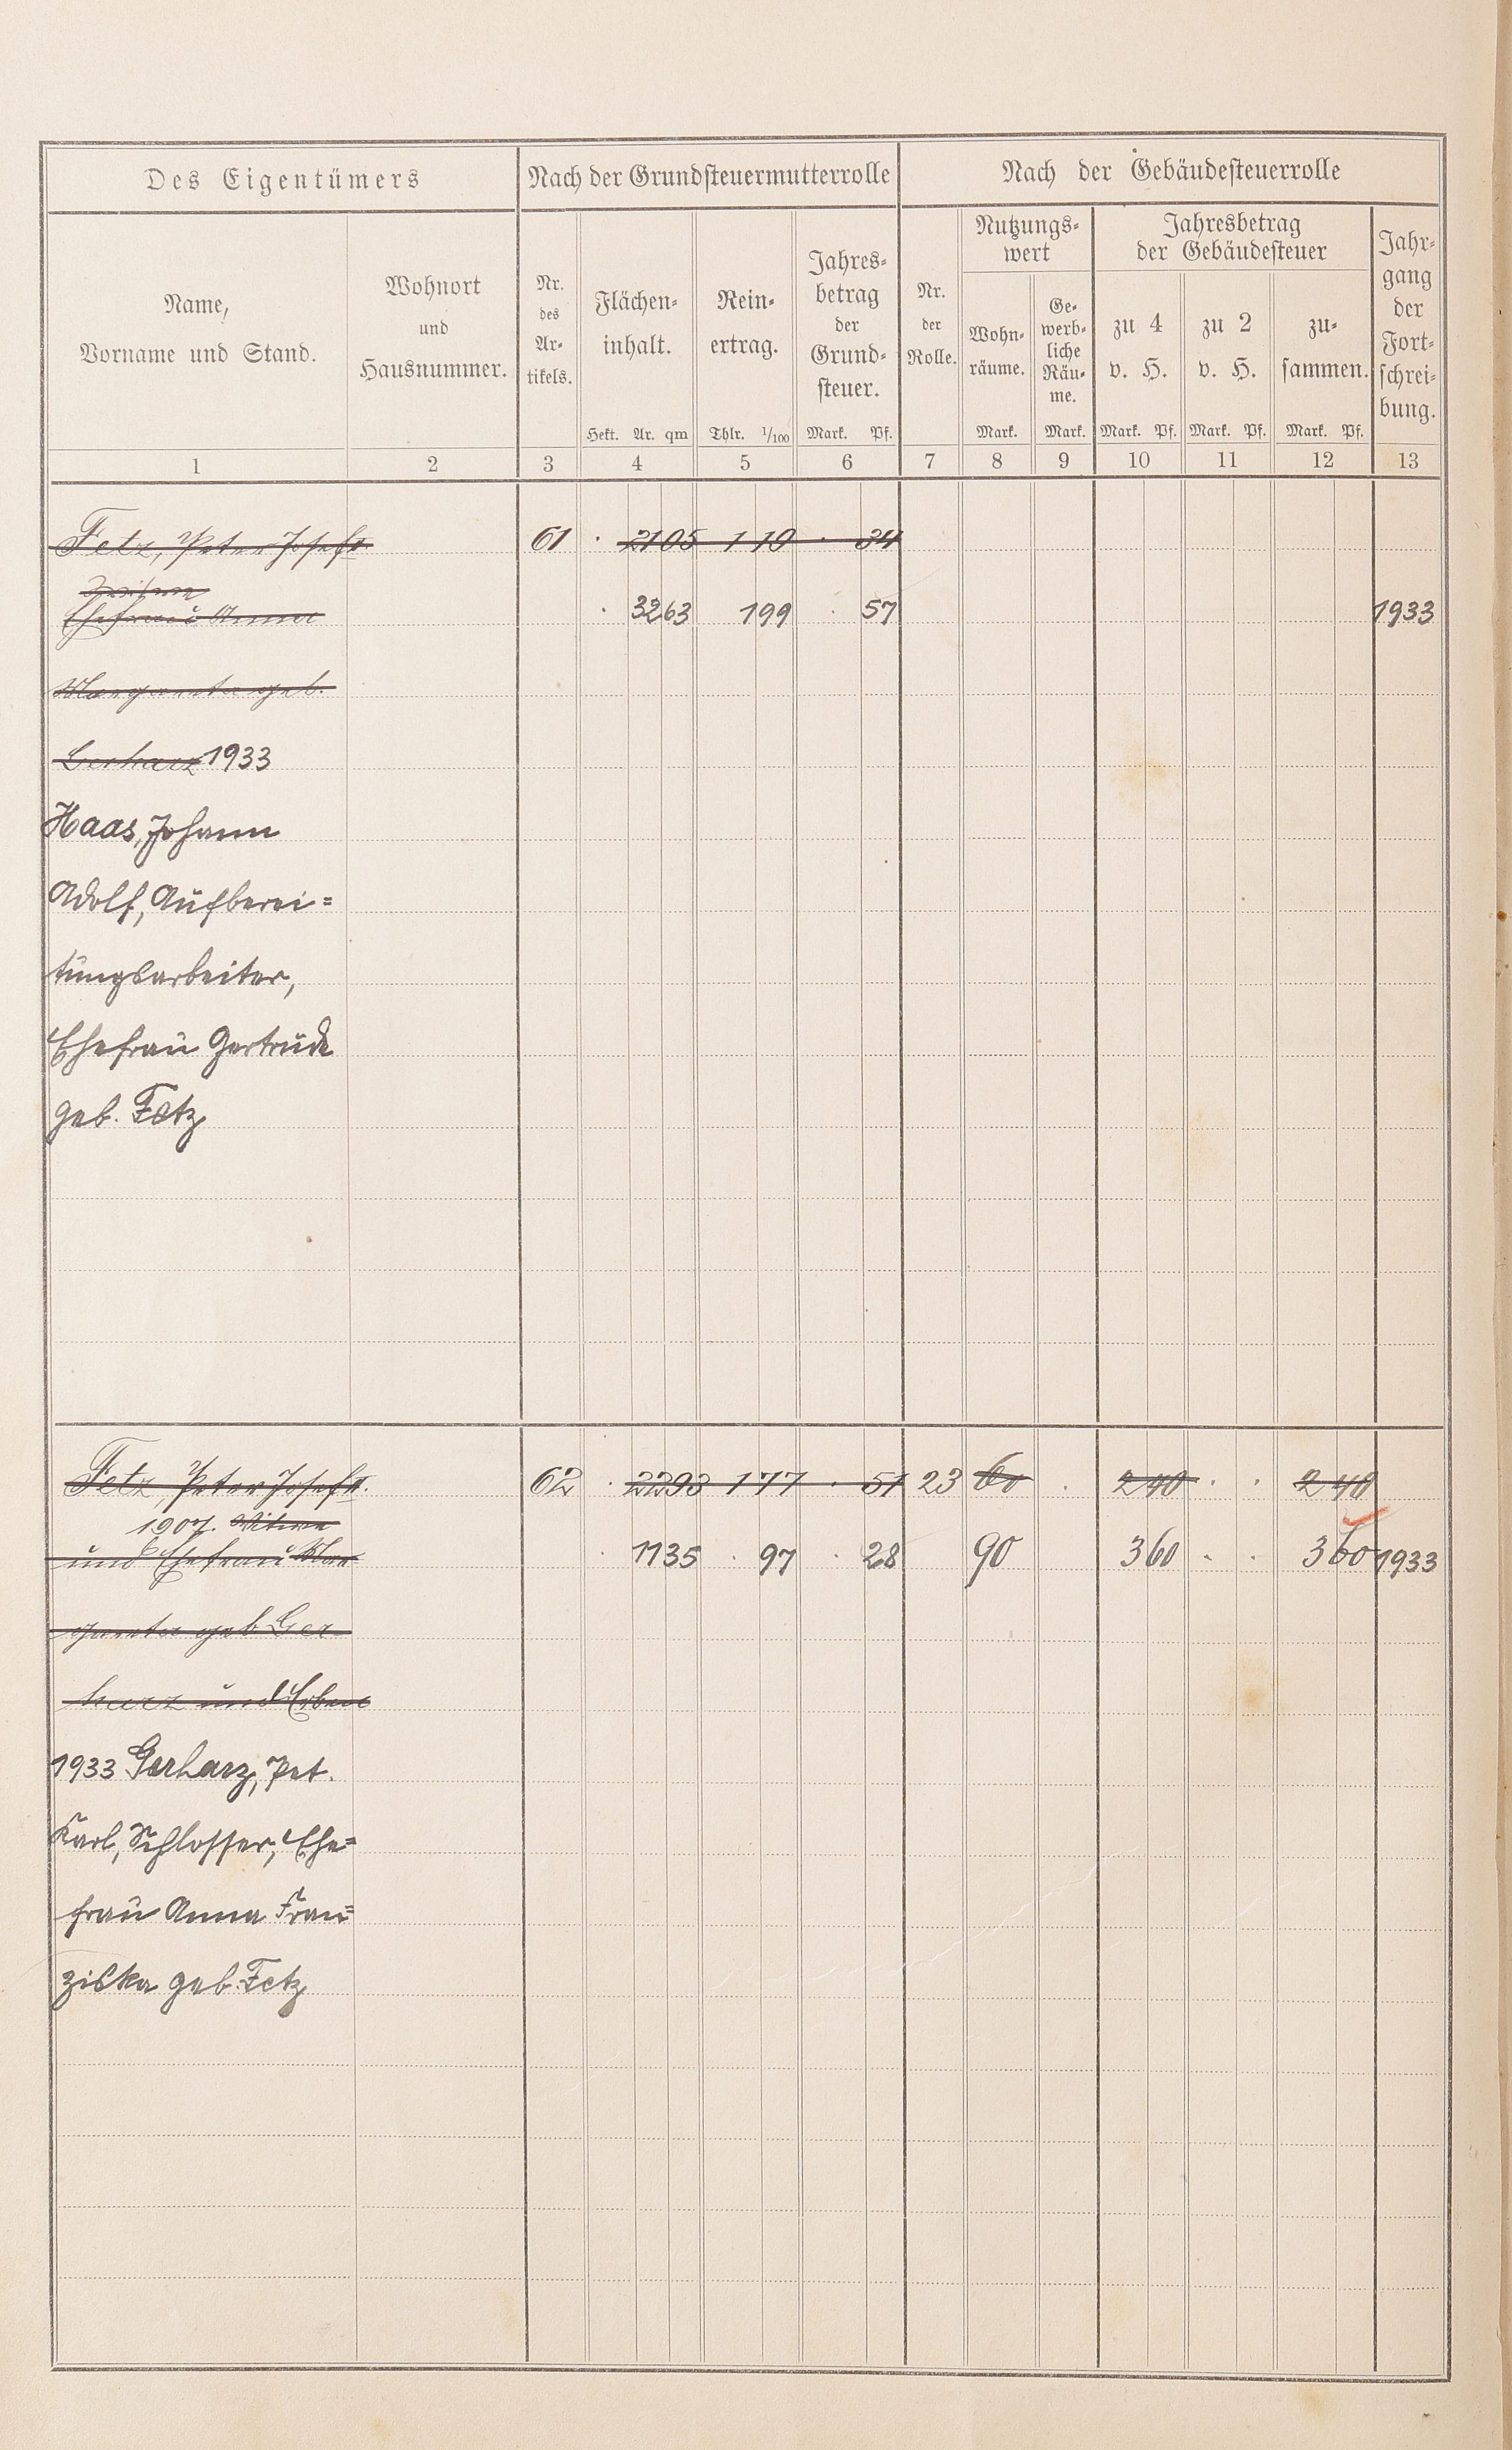 Des Eigentümers
Nach der Grundsteuermutterrolle
Nach der Gebäudesteuerrolle
Name,
Vorname und Stand.
Wohnort
und
Hausnummer.
Nr.
des
Ar-
tikels.
Flächen-
inhalt.
Hekt. Ar. qm
Rein-
ertrag.
Thlr. 1/100
Jahres-
betrag
der
Grund-
steuer.
Mark. Pf.
Nr.
der
Rolle.
Nutzungs-
wert
Wohn-
räume.
Mark.
Ge-
werb-
liche
Räu-
me.
Mark.
Jahresbetrag
der Gebäudesteuer
zu 4
v. H.
Mark. Pf.
zu 2
v. H.
Mark. Pf.
zu-
sammen.
Mark. Pf.
Jahr-
gang
der
Fort-
schrei-
bung.
1 2 3 4 5 6 7 8 9 10 11 12 13
Fetz, Peter Josef 61 . 2105 1 10 . 34
Witwe
Ehefrau Anna . 3263 199 . 57 1933
Margareta geb.
Gerharz 1933
Haas, Johann
Adolf, Aufberei=
tungsarbeiter,
Ehefrau Gertrude
geb. Fetz
Fetz, Peter Josef 62 . 2293 177 . 51 23 60 . 240 . . 240
1907. Witwe
und Ehefrau Mar . 1135 . 97 . 28 90 360 . . 360 1933
gareta geb Ger
harz und Erben
1933 Gerharz, Pet.
Karl, Schlosser, Ehe=
frau Anna Fran=
ziska geb. Fetz